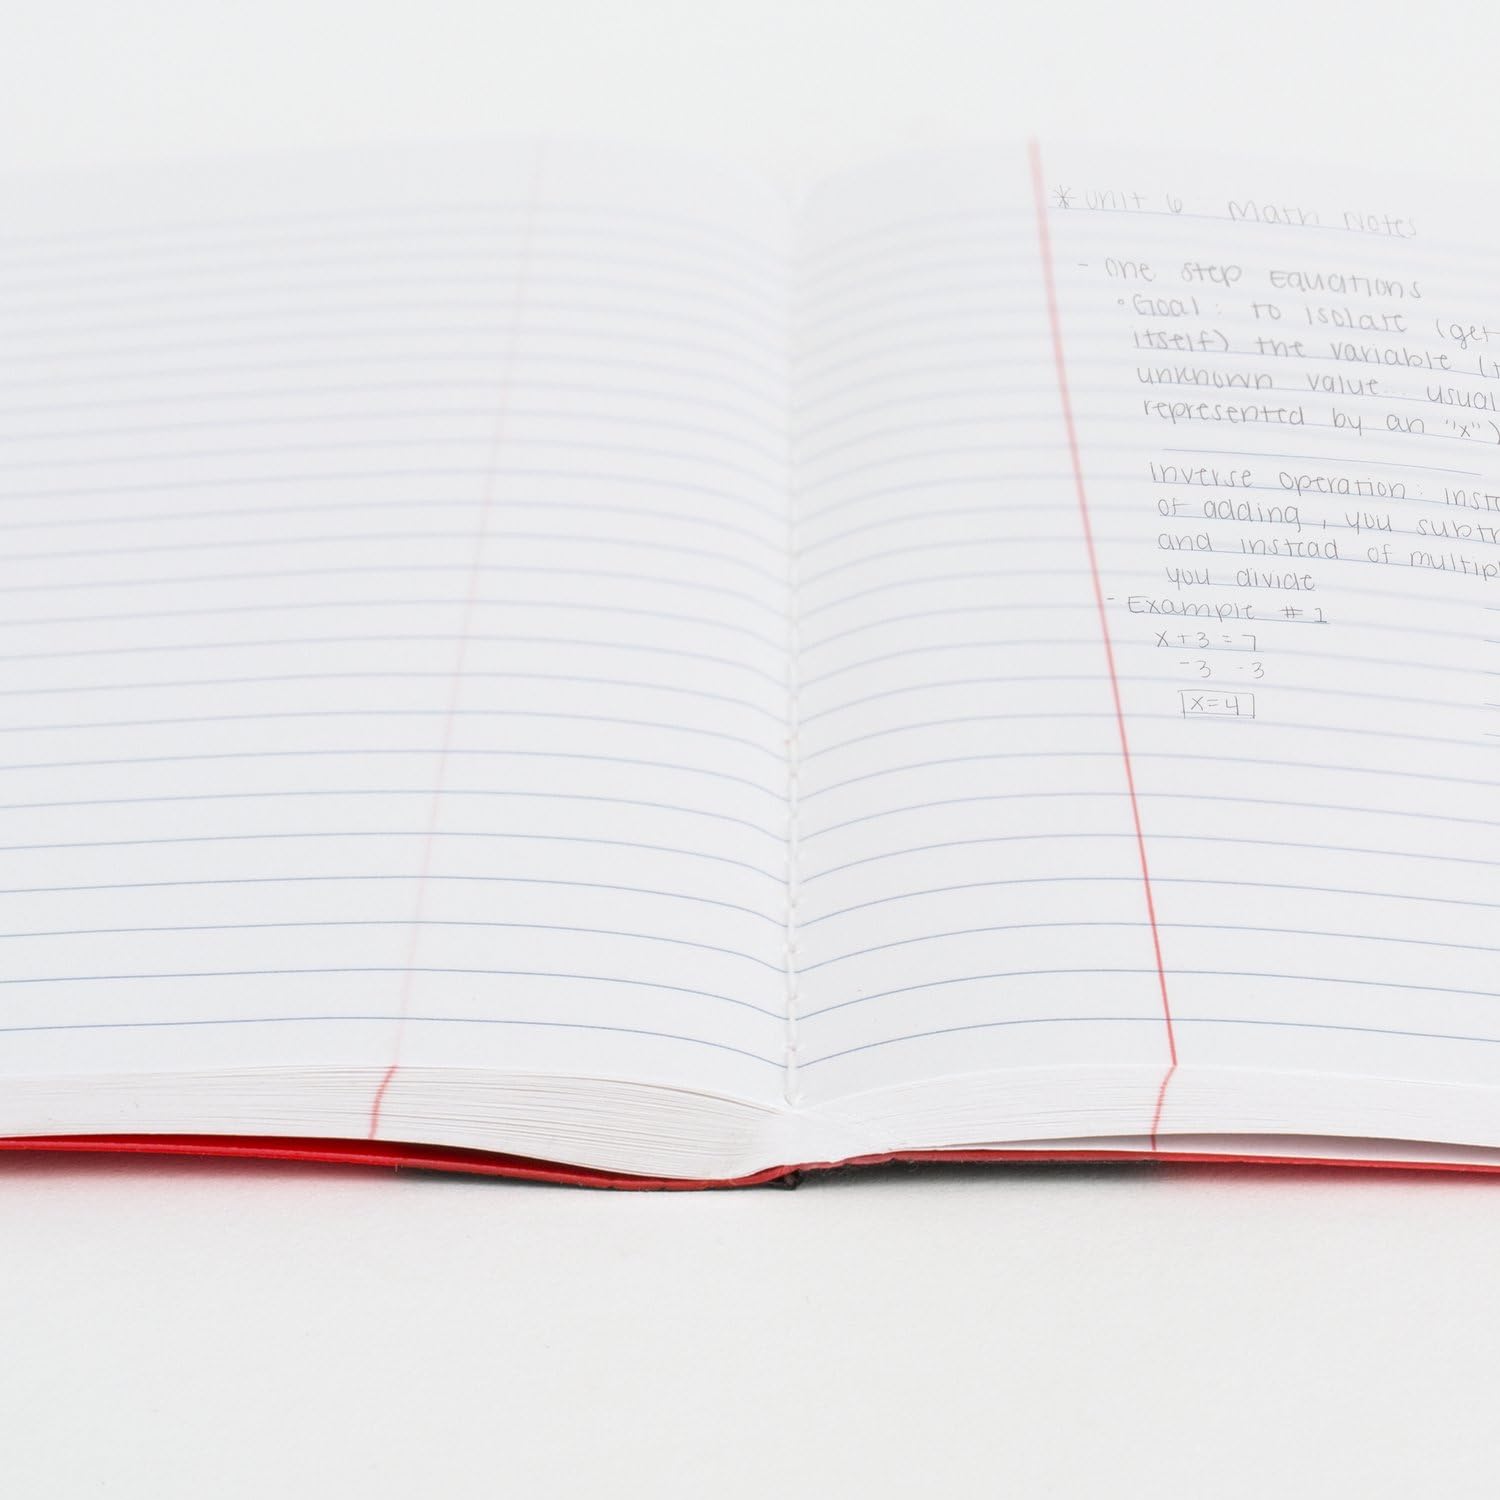 * Unit 6 Math Notes
- One Step Equations
° Goal: to isolate (get
itself) the variable (
unknown value... usual
represented by an "x")
Inverse operation: inst
of adding, you subtr
and instead of multip
you divide
- Example #1
x+3=7
-3 -3
x=4